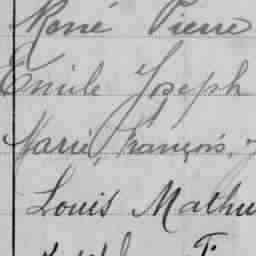 René Pierre
Emile Joseph
Marie, François,
Louis Mathu